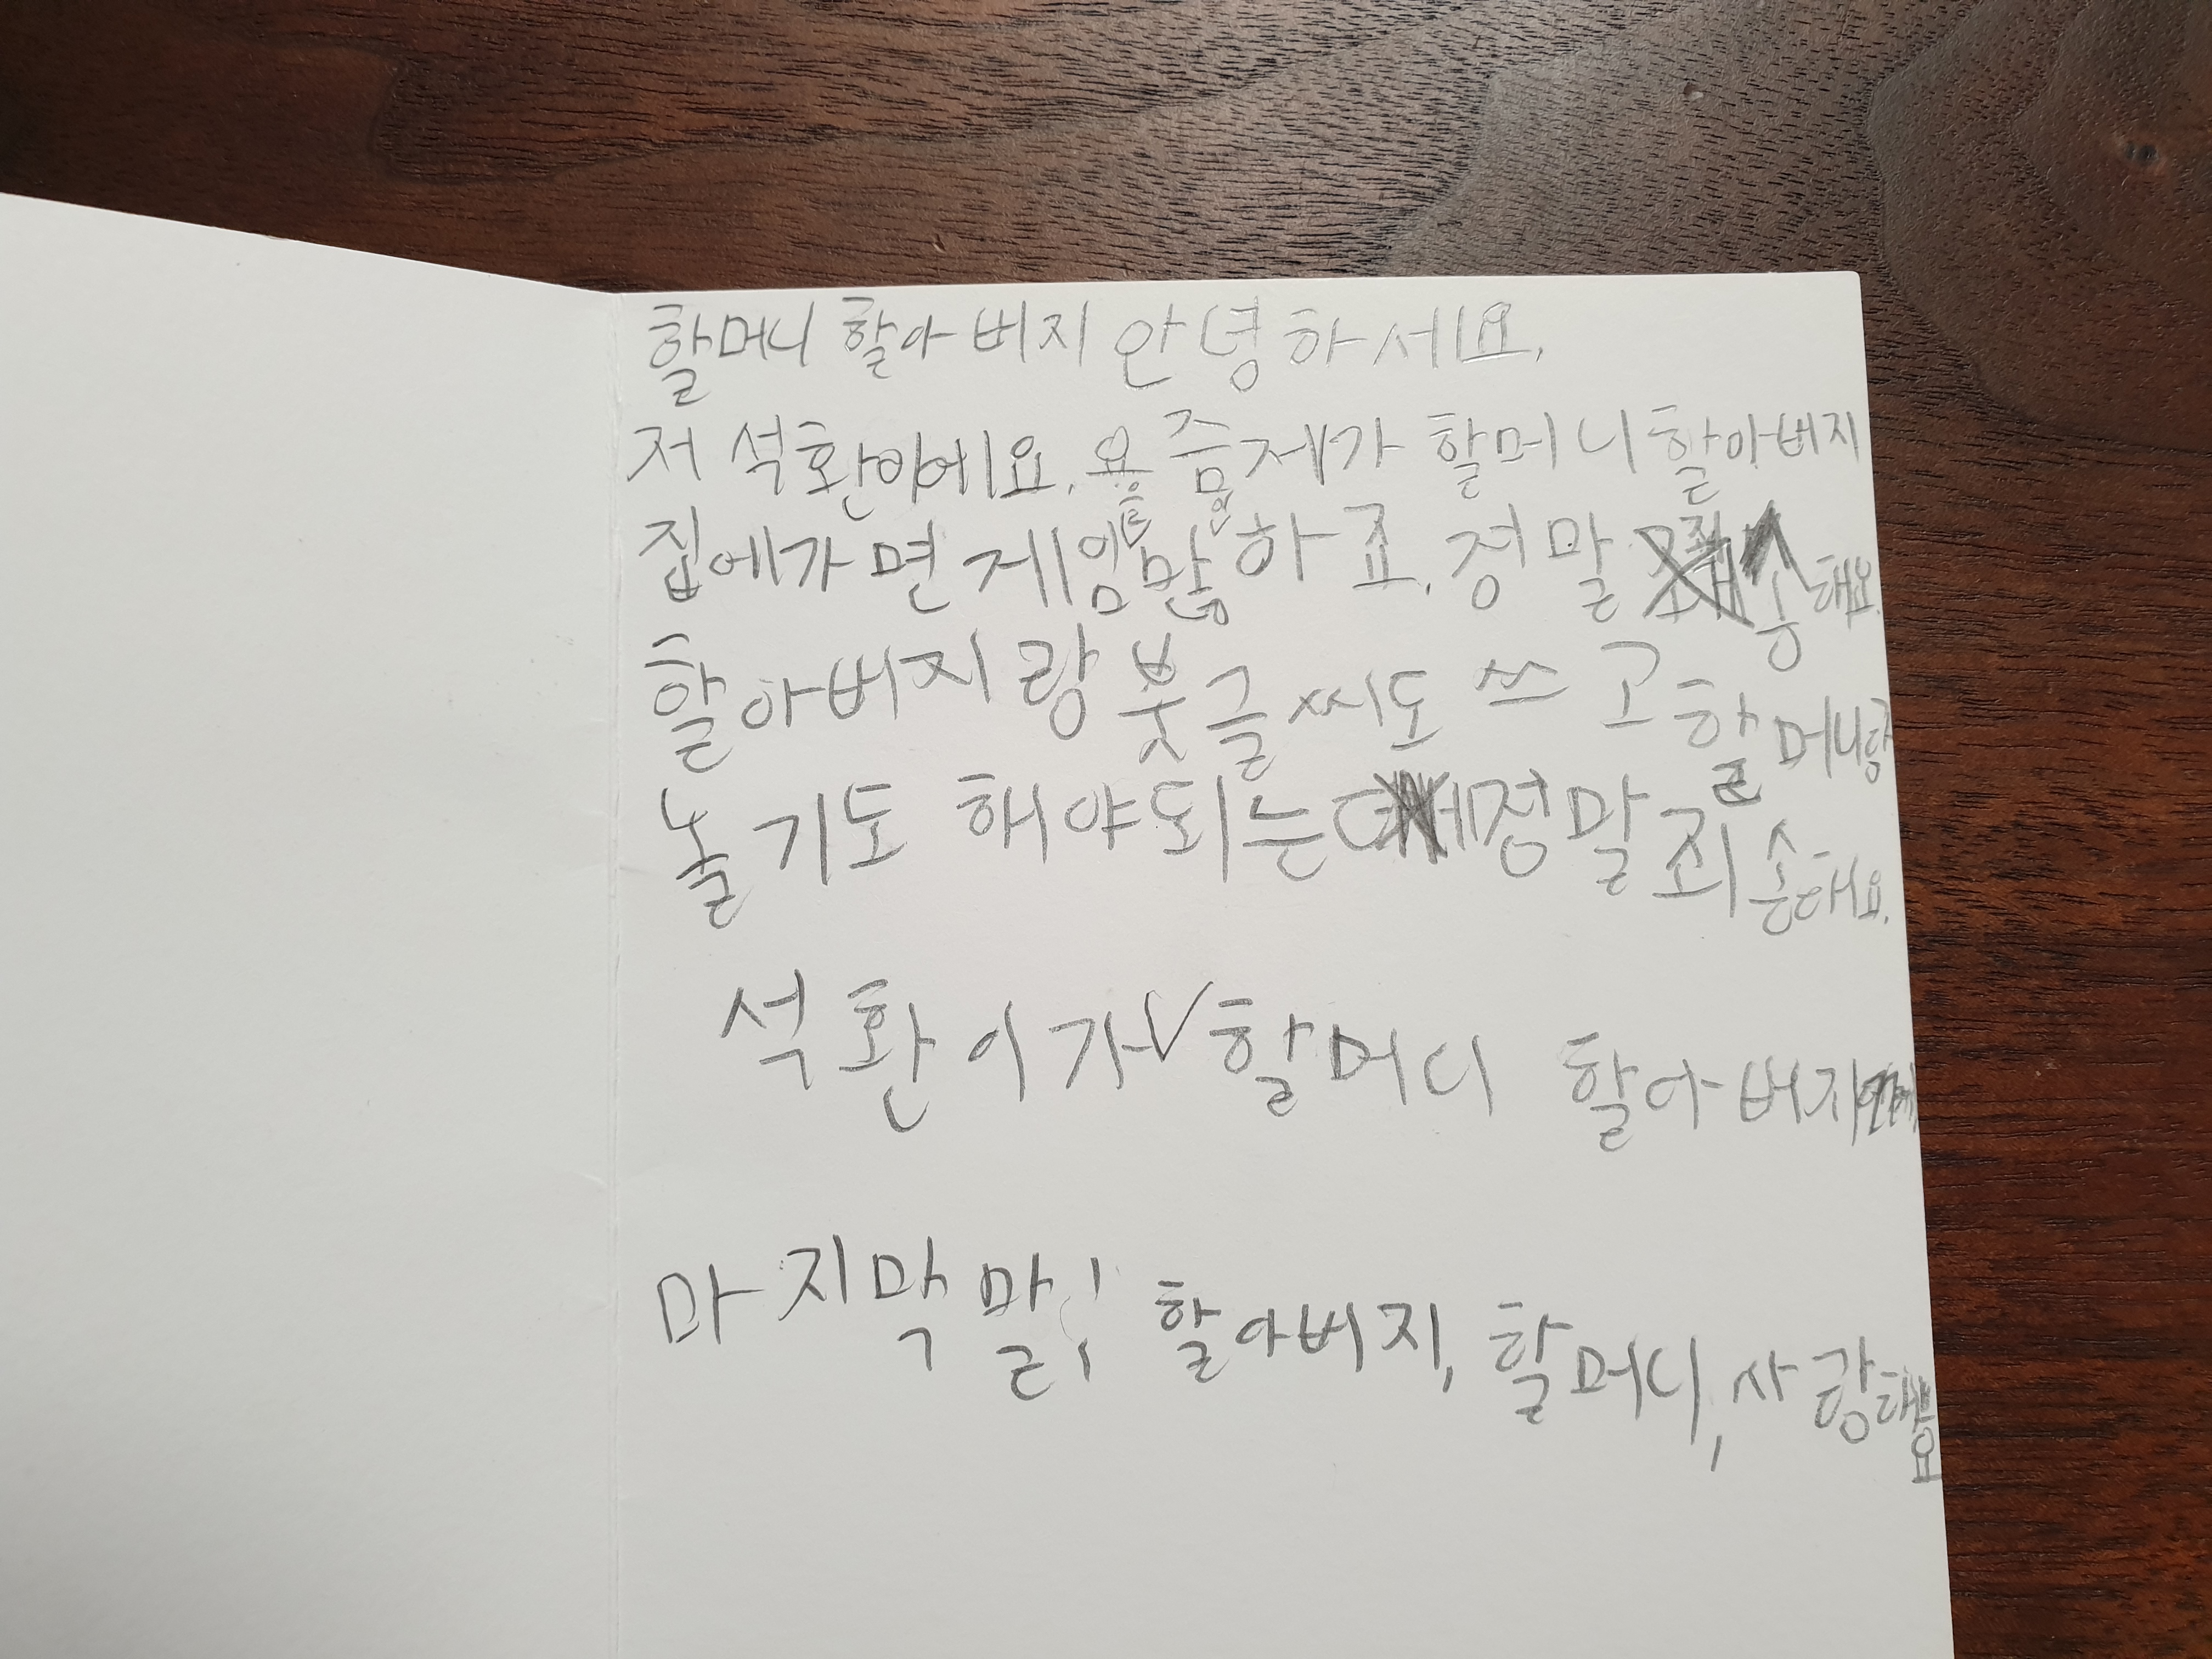 할머니 할아버지 안녕하세요.
저 석환이에요. 요즘 제가 할머니 할아버지
집에가면 게임만 많이 하죠. 정말 죄송해요.
할아버지랑 붓글씨도 쓰고 할머니랑
놀기도 해야되는데 정말 죄송해요.
석환이가 할머니 할아버지
마지막 말! 할아버지, 할머니, 사랑해요